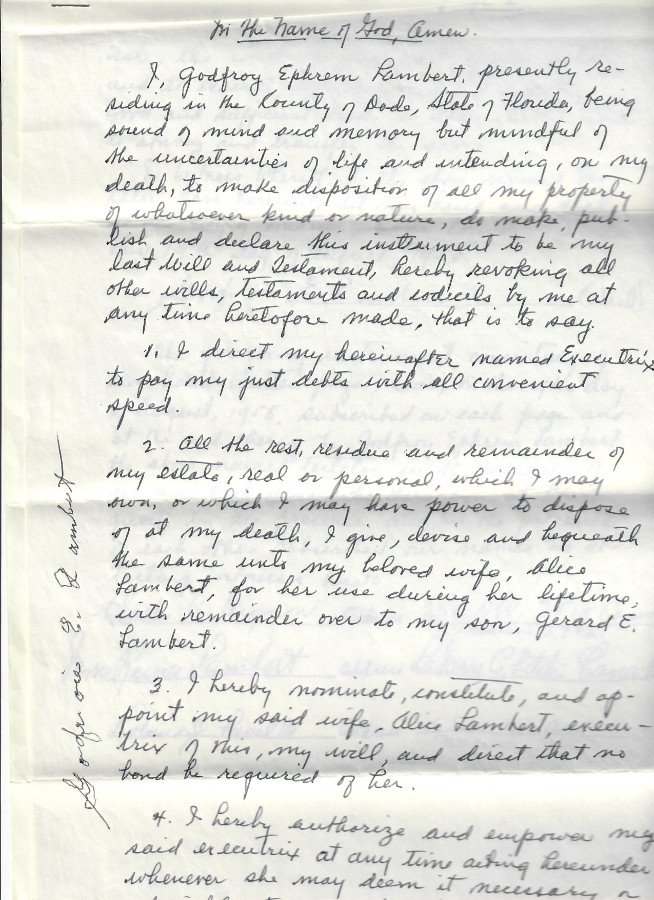 In The Name of God, Amen.
I, Godfroy Ephrem Lambert, presently re-
siding in the County of Dade, State of Florida, being
sound of mind and memory but mindful of
the uncertainties of life and intending, on my
death, to make disposition of all my property
of whatsoever kind or nature, do make, pub-
lish and declare this instrument to be my
last Will and Testament, hereby revoking all
other wills, testaments and codicils by me at
any time heretofore made, that is to say.
1. I direct my hereinafter named Executrix
to pay my just debts with all convenient
speed.
2. All the rest, residue and remainder of
my estate, real or personal, which I may
own, or which I may have power to dispose
of at my death, I give, devise and bequeath
the same unto my beloved wife, Alice
Lambert, for her use during her lifetime,
with remainder over to my son, Gerard E.
Lambert.
3. I hereby nominate, constitute, and ap-
point my said wife, Alice Lambert, execu-
trix of this, my will, and direct that no
bond be required of her.
4. I hereby authorize and empower my
said executrix at any time acting hereunder
whenever she may deem it necessary or
E. Lambert